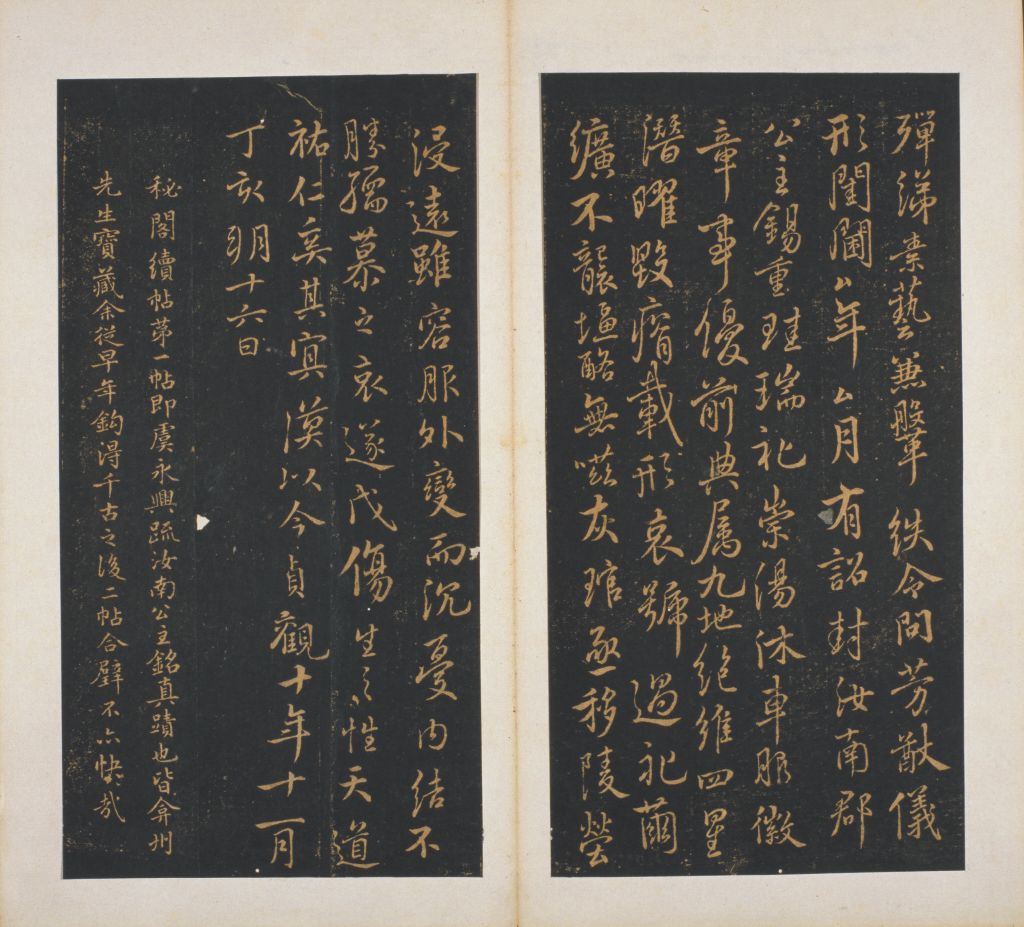 彈綈素藝兼鞶紩令問芳猷儀
形閨閫厶年厶月有詔封汝南郡
公主錫重珪瑞礼崇湯沐車服徽
章事優前典属九地絕維四星
潛曜毀瘠載形哀號過礼繭
纊不襲塩酪無嗞灰琯亟移陵塋
浸遠雖容服外變而沉憂内結不
勝孺慕之哀遂成傷生之性天道
祐仁奚其冥漠以今貞觀十年十一月
丁亥朔十六日
秘閣續帖第一帖即虞永興疏汝南公主銘真蹟也皆弇州
先生寶藏余從早年鈎得千古之後二帖合璧不亦快哉